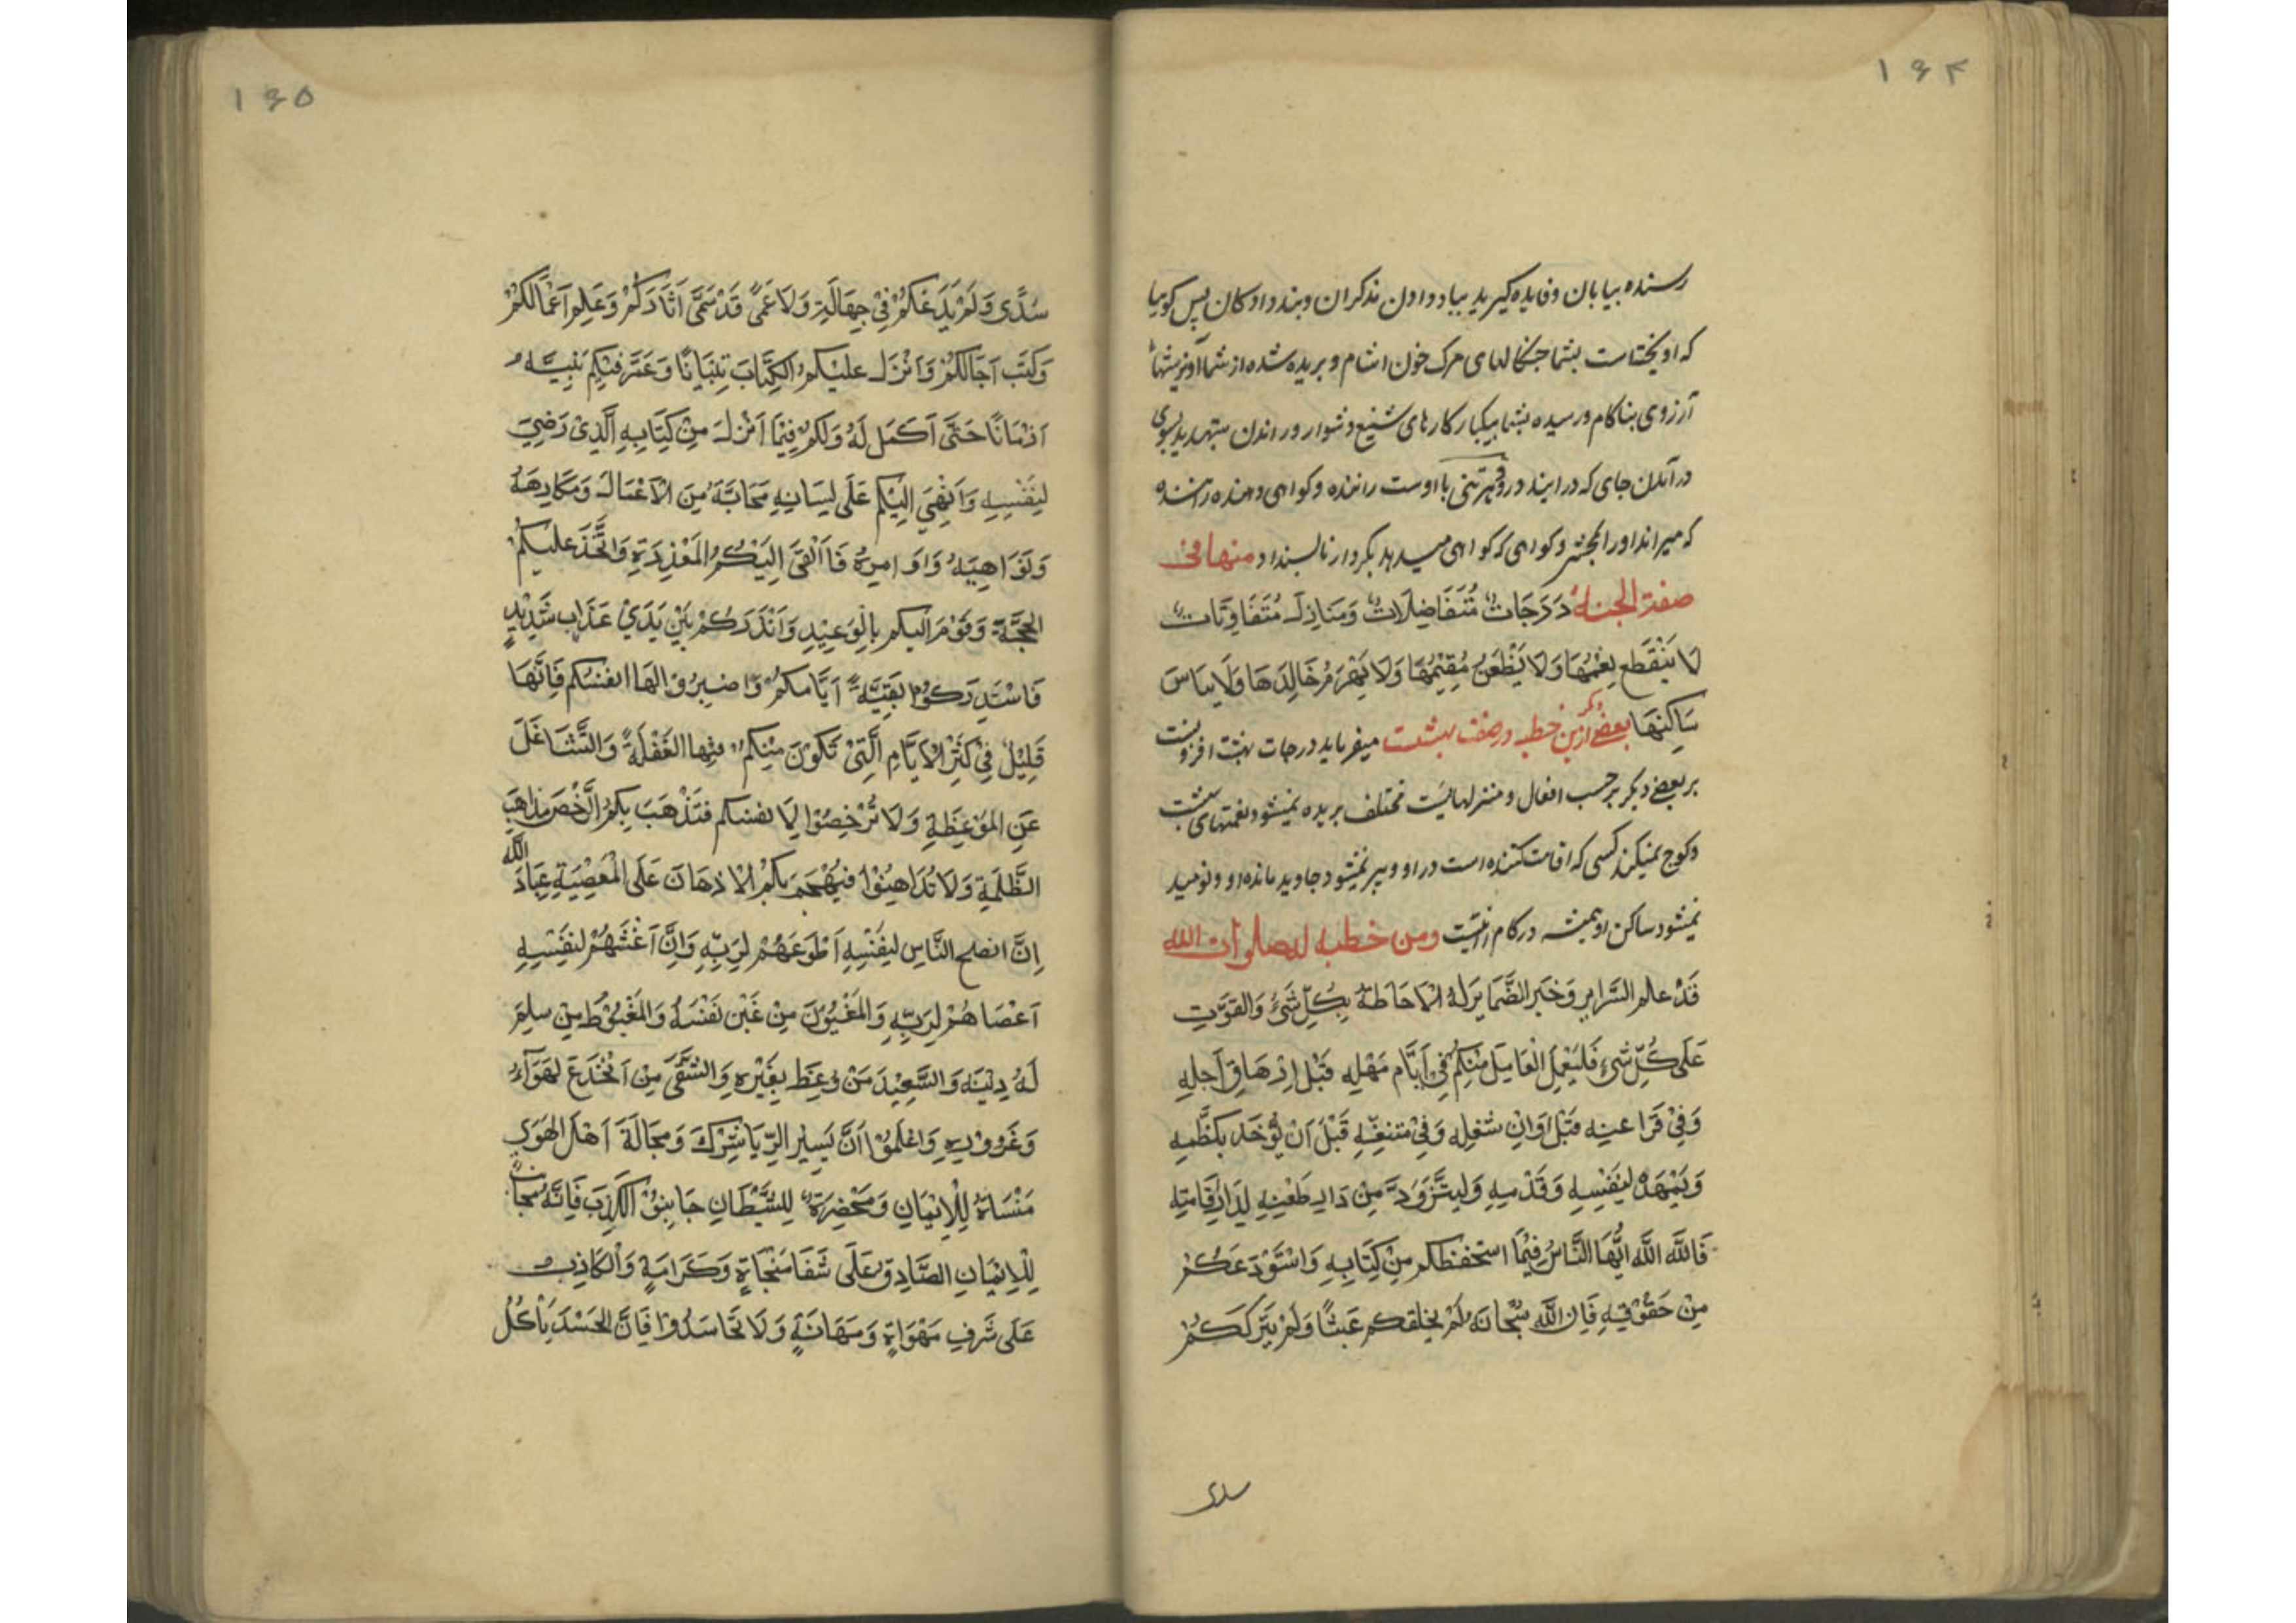 ۱۶۴
رسنده بیابان وفایده گیرید بیاد دادن مذکران و پند دادگان پس گوییا
که اویختاست بشما جنکالهای مرک خون اشام و بریده شده از شما آویزشهاء
آرزوی بناکام و رسیده بشما بیکبار کارهای شنیع و دشوار و راندن بسوی
در آمدن جای که در ایند درو هر تنی با اوست راننده و کواهی دهنده راننده
که میراند اورا بمحشر و کواهی که کواهی میدهد بکردار ناپسند او منها فی
صفة الجنة دَرَجَاتٌ مُتَفَاضِلَاتٌ وَمَنَازِلَ مُتَفَاوِتَات
لَا يَنْقَطِع نِعْمُهَا وَلَا يَظْعَنُ مُقِيْمُهَا وَلَا يَهْرَمُ خَالِدَهَا وَلَا يَبَاسَ
سَاكِنَهَا بعضی دکر ازین خطبه در صفت بهشت میفرماید درجات بهشت افزونست
بر بعضی دیکر بر حسب افعال و منزلهاییست مختلف بریده نمیشود نعمتهای بهشت
وکوچ نمیکند کسی که اقامت کننده است در او و پیر نمیشود جاوید مانده او و نومید
نمیشود ساکن او همیشه در کام ومن خطبه له صلوات الله
قَدْ علم السَّرایر وَخَبَر الضَّمَایرَ لَهُ الْاَحَاطَةُ بِكُلِّ شَیْءٍ وَالقوَّت
عَلَی كُلِّ شَیْءٍ فَلْيَعْمَلِ الْعَامِلَ مِنْكُمْ فِیْ اَيَّام مَهْلِهِ قَبْلَ اِرْهَاقِ اَجَلِهِ
وَفِیْ فَرَاغِهِ قَبْلَ اَوَانِ شغلِهِ وَفِیْ متنفَّسِهِ قَبْلَ اَنْ يُّؤْخَذَ بِكَظَمِهِ
وَيَمْهَدْ لِنَفْسِهِ وَقَدَمِهِ وَلْيَتَزَوَّدْ مِنْ دَارِ ظَعْنِهِ لِدَارِ اِقَامَتِهِ
فَاللّٰهَ اللّٰهَ اَيُّهَا النَّاسُ فِيْمَا استحفظكم مِنْ كِتَابِهِ وَاسْتَوْدَعَكُمْ
مِنْ حَقُوْقِهِ فَاِن اللّٰهَ سُبْحَانَهُ لَمْ يخلقكم عَبَثًا وَلَمْ يَتْرُكْكُمْ
سدی
۱۶۵
سُدًی وَلَمْ يَدَعْكُمْ فِیْ جِهَالَةٍ وَلَا عَمًی قَدْ سَمَّی اَثَارَكُمْ وَعَلِمَ اَعْمَالَكُمْ
وَكَتَبَ اَجَالَكُمْ وَاَنْزَلَ عليْكُمُ الكِتَابَ تِبْيَانًا وَعَمَّرَ فِيْكُمْ نَبِيَّهُ
اَزْمَانًا حَتَّی اَكمَلَ لَهُ وَلَكُمْ فِيْمَا اَنْزَلَ مِنْ كِتَابِهِ الَّذِیْ رَضِیَ
لِنَفْسِهِ وَاَنْهَی اِلَيْكُم عَلَی لِسَانِهِ مَحَابَّهُ مِنَ الْاَعْمَالَ وَمَكَارِهَهُ
وَنَوَاهِيَهُ وَاَوَامِرَهُ فَاَلْقَی اِلَيْكُمُ المَعْذِرَةِ وَاتَّخَذَ عَلَيكُمُ
الحُجَّةَ وَقَدَّمَ اِلَيكم بِالْوَعِيْدِ وَاَنْذَرَكُمْ بَيْنَ يَدَیْ عَذَابٍ شَدِيْدٍ
فَاسْتَدْرِكُوْا بَقِيَّةَ اَيَّامِكُمْ وَاصْبِرُوْا لَهَا انفسَكم فَاِنَّهَا
قَلِيْلٌ فِیْ كَثِيْرِ الْاَيَّامِ الَّتِیْ تَكُوْنَ مِنْكُم فِيْهَا الغَفْلَةَ وَالتَّشَاغَلَ
عَنِ المَوْعِظَةِ وَلَا تُرْخِصُوْا لِاَنفسكم فَتَذْهَبَ بِكُمُ الرُّخَصَ مَذَاهِبَ
الظَّلَمَةِ وَلَا تُدَاهِنُوْا فَيَهْجِمَ بِكُمُ الْاِدْهَانَ عَلَی الْمَعْصِيَةِ عِبَادَ اللّٰه
اِنَّ انصح النَّاسِ لِنَفْسِهِ اَطْوَعَهُمْ لِرَبِّهِ وَاِنَّ اَغَشَّهُمْ لِنَفْسِهِ
اَعْصَاهُمْ لِرَبِّهِ وَالمَغْبُوْنَ مِنْ غَبَنَ نَفْسَهُ وَالمَغْبُوْطَ مِنْ سلِمَ
لَهُ دِيْنَهُ وَالسَّعِيْدَ مَنْ وُعِظَ بِغَيْرِهِ وَالشَّقَی مَنِ انْخَدَعَ لِهَوَاءهُ
وَغَرُوْرِهِ وَاعْلَمُوْا اَنَّ يَسِيْرَ الرِّيَا شِرْكَ وَمُجَالَسَةَ اَهْلِ الهَوَی
مَنْسَاةٌ لِلْاِيْمَانِ وَمَحْضَرَةٌ لِلشَّيْطَانِ جَانِبُوْا الْكَذِبَ فَاِنَّهُ مُجَانِبٌ
لِلْاِيْمَانِ الصَّادِقُ عَلَی شَفَا مَنْجَاةٍ وَكَرَامَةٍ وَالْكَاذِبُ
عَلَی شَرَفِ مَهْوَاةٍ وَمَهَانَةٍ وَلَا تَحَاسَدُوْا فَاِنَّ الحَسَدَ يَأْكُلُ